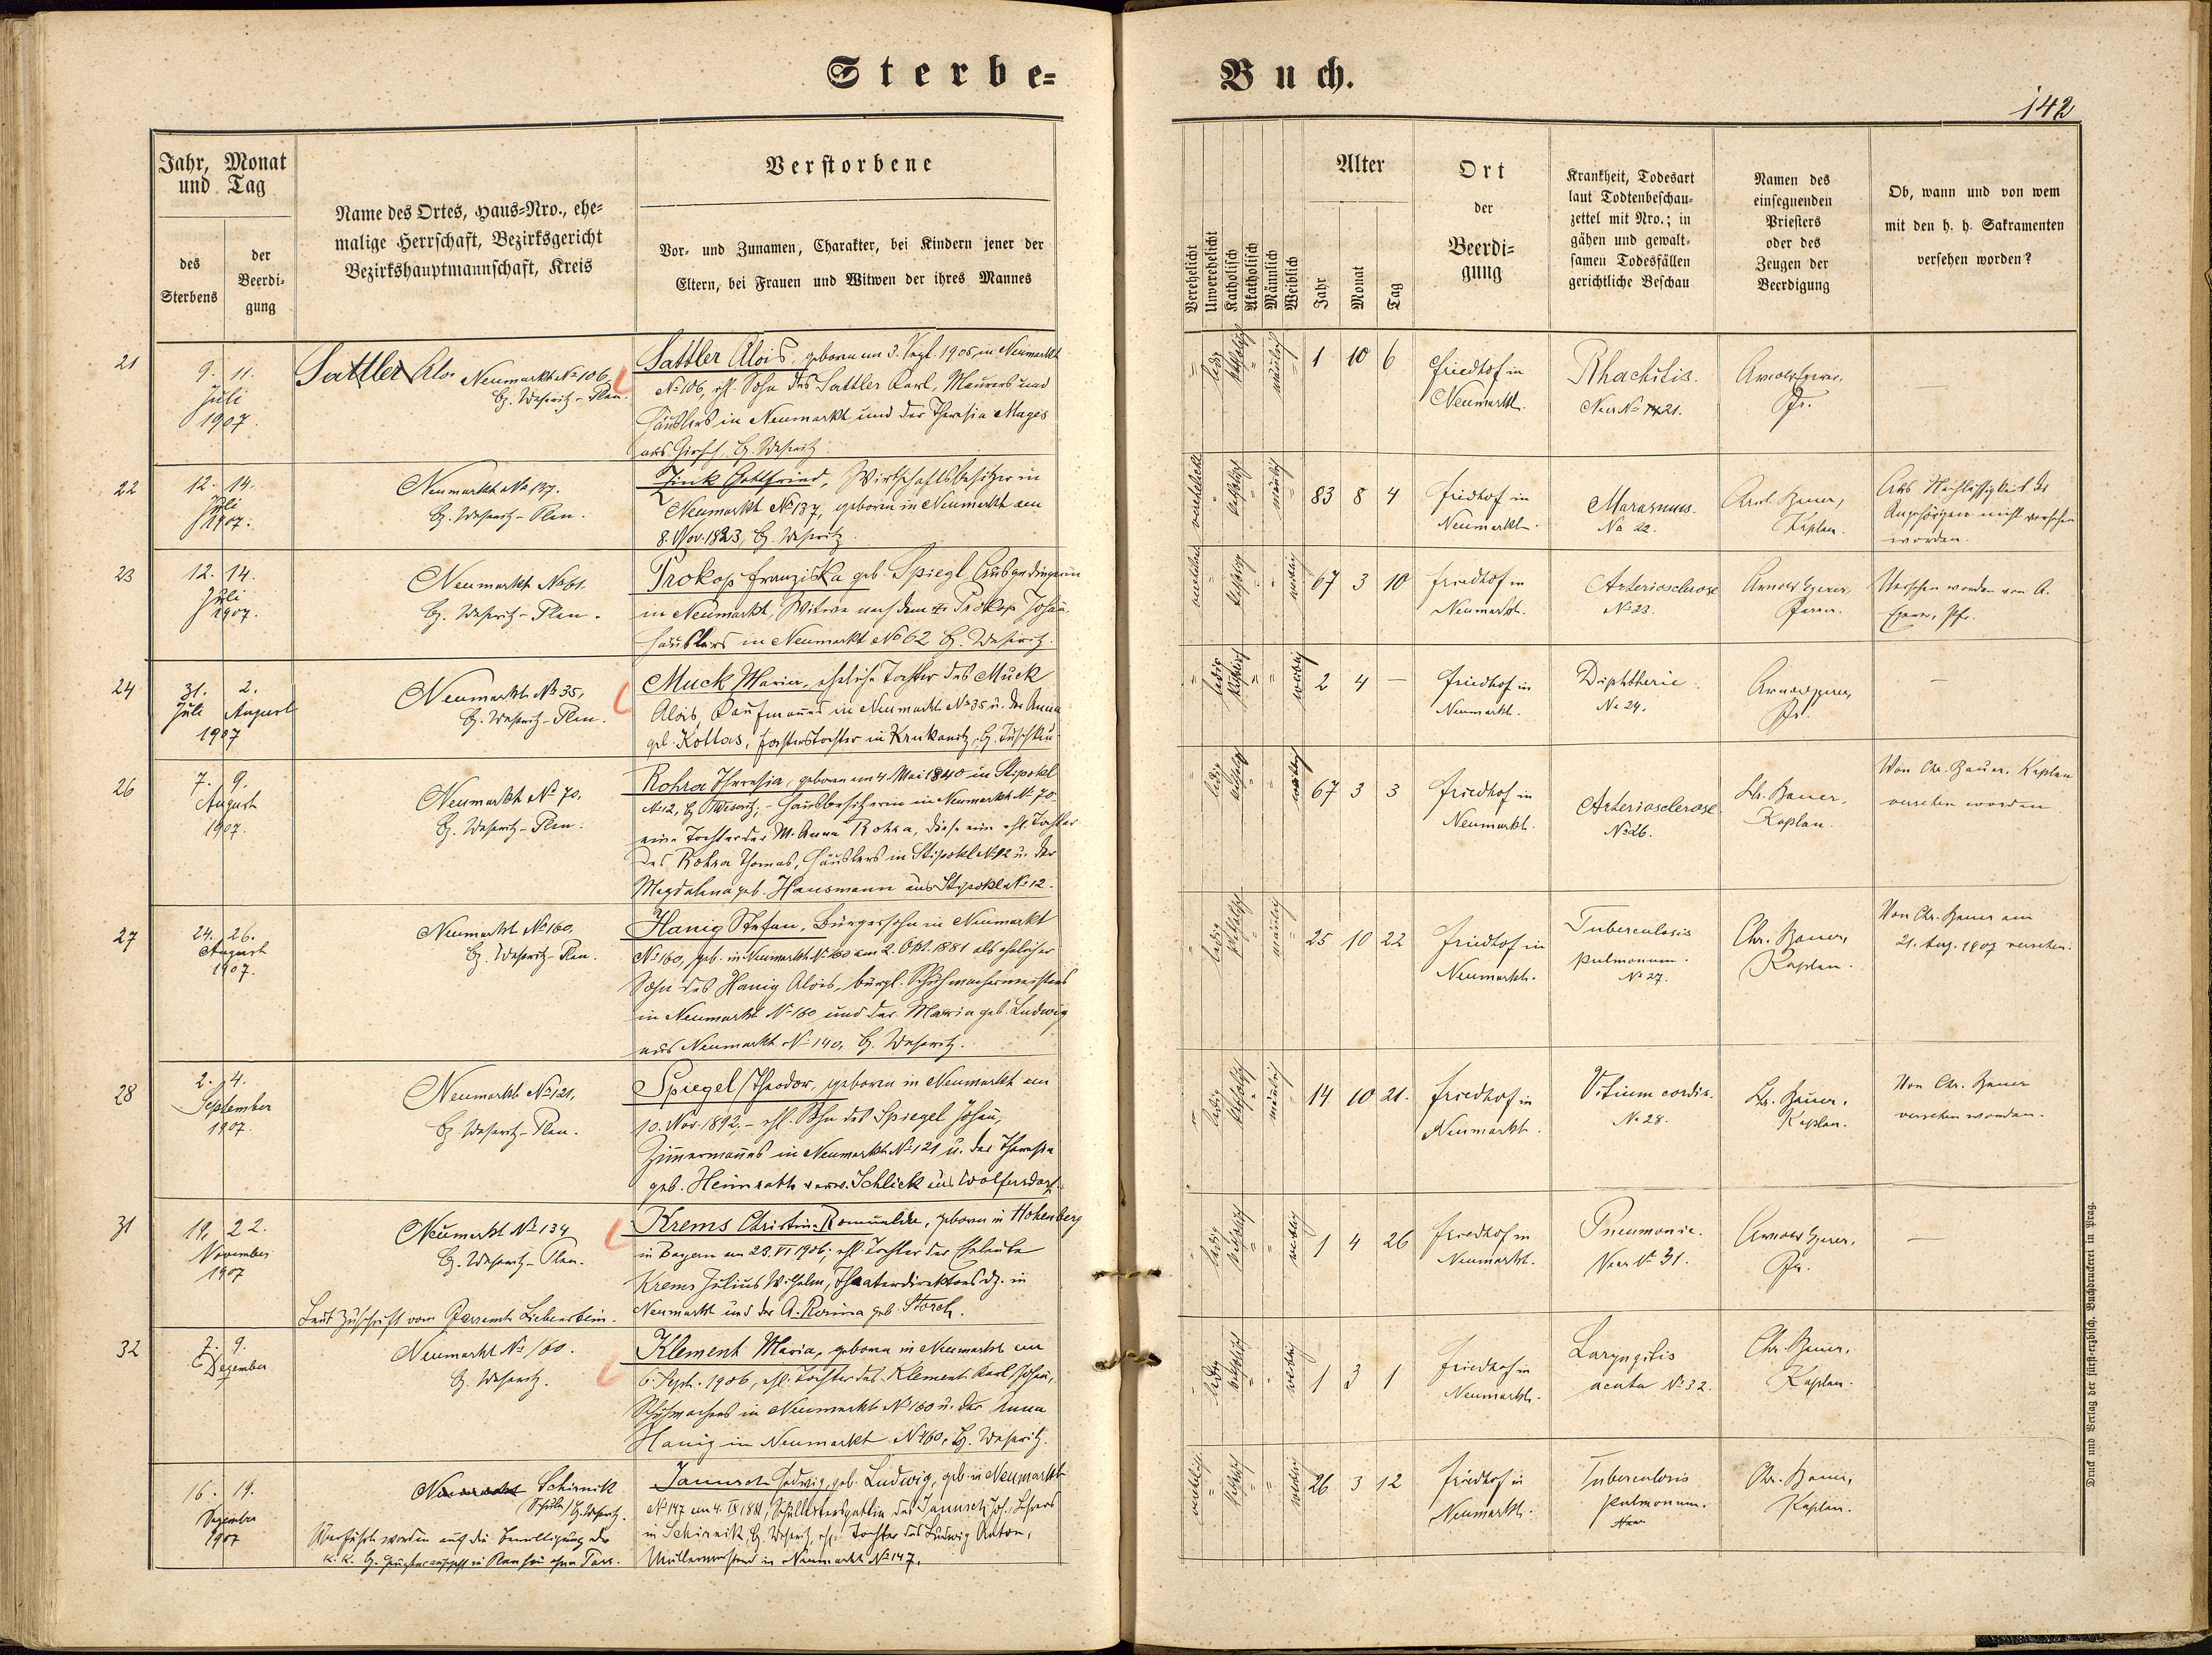 Sterbe-
Buch.
142
Jahr, Monat
und Tag
des
Sterbens
der
Beerdi-
gung
Name des Ortes, Haus-Nro., ehe-
malige Herrschaft, Bezirksgericht
Bezirkshauptmannschaft, Kreis
Verstorbene
Vor- und Zunamen, Charakter, bei Kindern jener der
Eltern, bei Frauen und Witwen der ihres Mannes
Verehelicht
Unverehelicht
Katholisch
Akatholisch
Männlich
Weiblich
Alter
Jahr
Monat
Tag
Ort
der
Beerdi-
gung
Krankheit, Todesart
laut Todtenbeschau-
zettel mit Nro.; in
gähen und gewalt-
samen Todesfällen
gerichtliche Beschau
Namen des
einsegnenden
Priesters
oder des
Zeugen der
Beerdigung
Ob, wann und von wem
mit den h. h. Sakramenten
versehen worden?
21
9. 11.
Juli
1907
Sattler Alois Neumarkt No 106
Bz. Weseritz-Plan.
Sattler Alois, geboren am 3. Sept. 1905 in Neumarkt
No 106, ehl. Sohn des Sattler Karl, Maurers und
Häuslers in Neumarkt und der Theresia Mages
aus Girsch, Bz. Weseritz.
ledig katholisch männlich
1 10 6
Friedhof in
Neumarkt.
Rhachitis.
No 21.
Pfr.
22
12. 14.
Juli
1907.
Neumarkt No 137.
Bz. Weseritz-Plan.
Zink Gottfried, Wirtschaftsbesitzer in
Neumarkt No 137, geboren in Neumarkt am
8. Nov. 1823, Bz. Weseritz.
verehelicht katholisch männlich
83 8 4
Friedhof in
Neumarkt.
Marasmus.
No 22.
Bauer,
Kaplan.
Aus Nachlässigkeit der
Angehörigen nicht versehen
worden.
23
12. 14.
Juli
1907.
Neumarkt
Bz. Weseritz-Plan.
Prokop Franziska geb. Spiegl, Ausgedingerin
in Neumarkt, Witwe nach dem Prokop Johann
Häuslers in Neumarkt No 62 Bz. Weseritz.
katholisch weiblich
67 3 10
Friedhof in
Neumarkt.
Arteriosclerose
No 23.
Pfarrer.
Versehen worden von A.
Pfr.
24
31. 2.
Juli August
1907
Neumarkt No 35,
Bz. Weseritz-Plan.
Muck Maria, eheliche Tochter des Muck
Alois, Kaufmanns in Neumarkt No 35 u. der Anna
geb. Kottas, Försterstochter in Krukanitz, Bz. Tuschkau
ledig katholisch weiblich
2 4 —
Friedhof in
Neumarkt.
Diphtherie.
No 24.
Pfr.
—
26
7. 9.
August
1907.
Neumarkt No 70,
Bz. Weseritz-Plan.
Rohra Theresia, geboren am 4. Mai 1840 in Stipokl
No 12, Bz. Weseritz, – Hausbesitzerin in Neumarkt No 70.
eine Tochter der M. Anna Rohra, diese eine ehl. Tochter
des Rohra Thomas, Häuslers in Stipokl No 12 u. der
Magdalena geb. Hausmann aus Stipokl No 12.
ledig katholisch weiblich
67 3 3
Friedhof in
Neumarkt.
Arteriosclerose
No 26.
Chr. Bauer,
Kaplan.
Von Chr. Bauer, Kaplan
versehen worden
27
24. 26.
August
1907.
Neumarkt No 160,
Bz. Weseritz-Plan.
Hanig Stefan, Bürgersohn in Neumarkt
No 160, geb. in Neumarkt No 160 am 2. Okt. 1881 als ehelicher
Sohn des Hanig Alois, bürgl. Schuhmachermeisters
in Neumarkt No 160 und der Maria geb. Ludwig
aus Neumarkt No 140, Bz. Weseritz.
ledig katholisch männlich
25 10 22
Friedhof in
Neumarkt.
Tuberculosis
pulmonum.
No 27.
Chr. Bauer,
Kaplan.
Von Chr. Bauer am
21. Aug. 1907 versehen.
28
2. 4.
September
1907.
Neumarkt No 121,
Bz. Weseritz-Plan.
Spiegel Theodor, geboren in Neumarkt am
10. Nov. 1892, – ehl. Sohn des Spiegel Johann,
Zimmermanns in Neumarkt No 121 u. der Theresia
geb. Heimrath verw. Schlick aus Wolfersdorf.
ledig katholisch männlich
14 10 21.
Friedhof in
Neumarkt.
Vitium cordis.
No 28.
Chr. Bauer,
Kaplan.
Von Chr. Bauer
versehen worden.
31
19. 22.
November
1907
Neumarkt No 134
Bz. Weseritz-Plan.
Laut Zuschrift vom Pfarramte Liebenstein.
Krems Christina Romualda, geboren in Hohenberg
in Bayern am 23. VI 1906, ehl. Tochter der Eheleute
Krems Julius Wilhelm, Theaterdirektors dz. in
Neumarkt und der A. Rosina geb. Storch.
ledig katholisch weiblich
1 4 26
Friedhof in
Neumarkt.
Pneumonie.
No 31.
Pfr.
—
32
7. 9.
Dezember
Neumarkt No 160.
Bz. Weseritz.
Klement Maria, geboren in Neumarkt am
6. Sept. 1906, ehl. Tochter des Klement Karl Johann,
Schuhmachers in Neumarkt No 160 u. der Anna
Hanig in Neumarkt No 160, Bz. Weseritz.
ledig katholisch weiblich
1 3 1
Friedhof in
Neumarkt.
Laryngitis
acuta No 32.
Chr. Bauer,
Kaplan.
16. 19.
Dezember
1907
Neumarkt Schirnik
Bz. Weseritz.
Überführt worden auf die Bewilligung der
Janusch Hedwig, geb. Ludwig, geb. in Neumarkt
No 147 am 4. IX 1881, Schulleitersgattin des Janusch Joh., Lehrers
in Schirnik, Bz. Weseritz, ehl. Tochter des Ludwig Anton,
Müllermeisters in Neumarkt No 147.
verehelicht katholisch weiblich
26 3 12
Friedhof in
Neumarkt.
Tuberculosis
pulmonum.
Chr. Bauer,
Kaplan.
Druck und Verlag der fürst-erzbisch. Buchdruckerei in Prag.